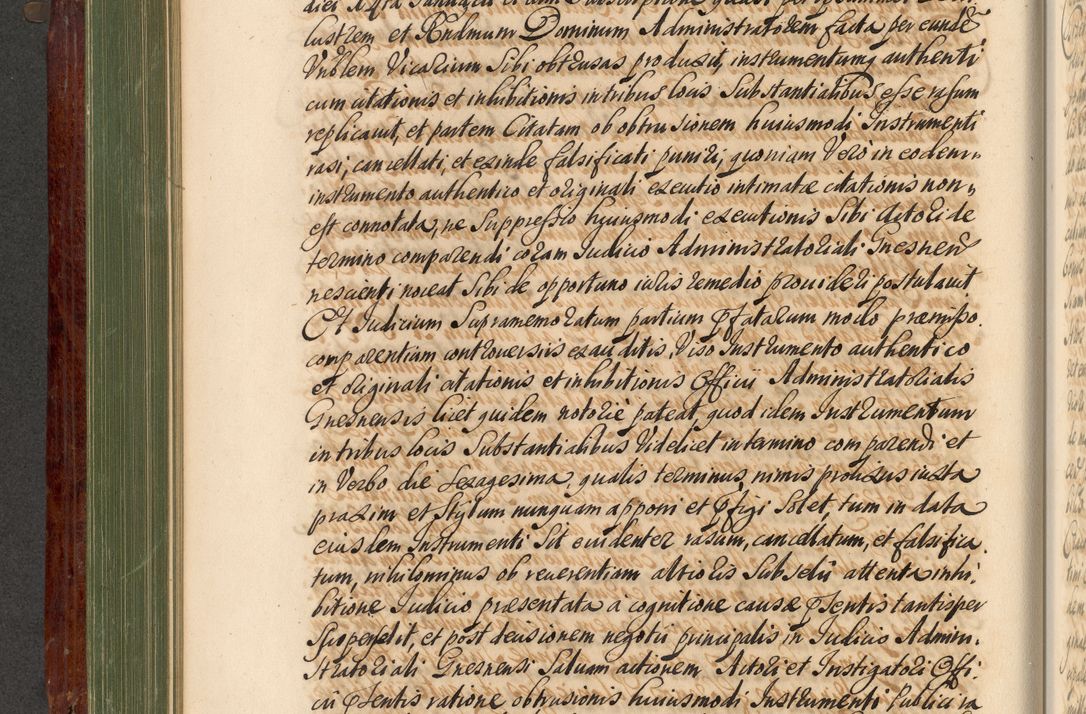 lustrem et Rndmum Dominum Administratorem facta per eundē
Vrblem Vicarium Sibi obtrusas produxit, instrumentumq authenti
cum citationis et inhibitionis in tribus locis Substantialibus esse rasum
replicauit, et partem Citatam ob obtrusionem huiusmodi Instrumenti
rasi, cancellati, et exinde falsificati puniri, quoniam Verò in eodem
instrumento authentico et originali executio intimatæ citationis non
est connotata, ne Suppressio huiusmodi executionis Sibi Actori de
termino comparendi coram Iudicio Administratoriali Gnesnen
nescienti noceat Sibi de opportuno iuris remedio prouideri postulauit
Et Iudicium Supramemoratum partium pfatarum modo præmisso
comparentium controuersiis exauditis, Viso Instrumento authentico
et originali citationis et inhibitionis Officii Administratorialis
Gnesnensis licet quidem notoriè pateat, quod idem Instrumentum
in tribus locis Substantialibus Videlicet in termino comparendi et
in Verbo die Sexagesima, qualis terminus nimis prolixus iuxta
praxim et Stylum nunquam apponi et pfigi Solet, tum in data
eiusdem Instrumenti Sit euidenter rasum, cancellatum, et falsifica
tum, nihilominus ob reuerentiam altioris Subselii attenta inhi
bitione Iudicio præsentata à cognitione causæ psentis tantisper
Supersedit, et post decisionem negotii principalis in Iudicio Admini
stratoriali Gnesnensi Saluam actionem Actori et Instigatori Offi
cii psentis ratione obtrusionis huiusmodi Instrumenti publici ra